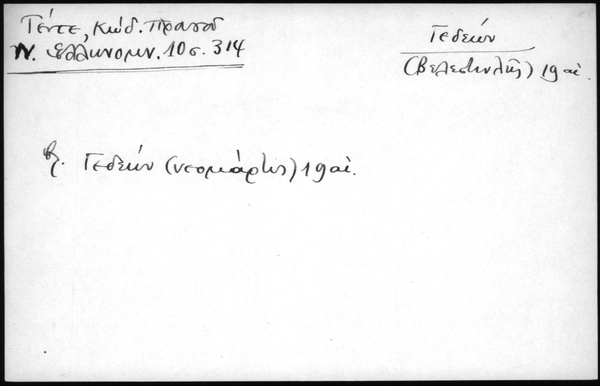 Γέντε, Κώδ. Πρωτοῦ
Ν. Ἑλληνομν. 10 σ. 314
Γεδεών
(Βελεστινλῆς) 19 αἰ.
βλ. Γεδεών (νεομάρτυς) 19 αἰ.